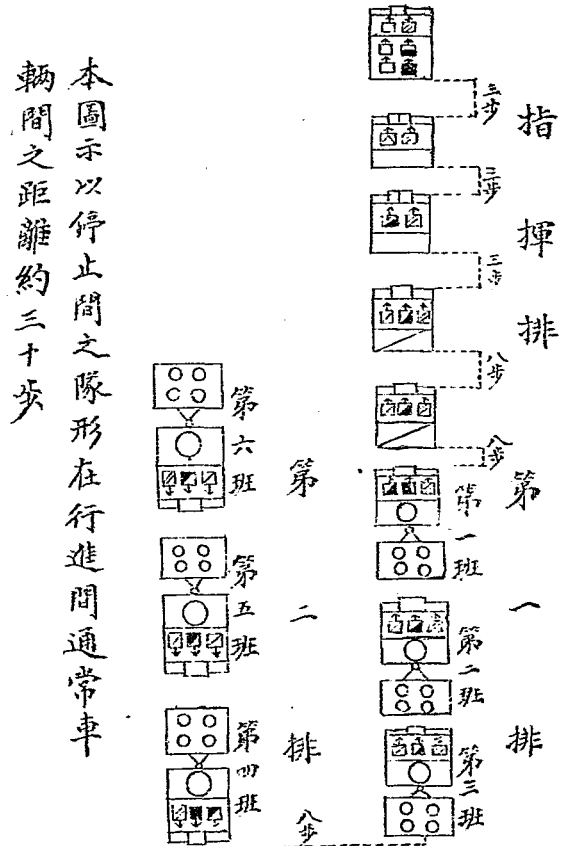 指揮排
三步
三步
三步
八步
八步
第一排
第一班
第二班
第三班
八步
第二排
第六班
第五班
第四班
本圖示以停止間之隊形在行進間通常車
輛間之距離約三十步